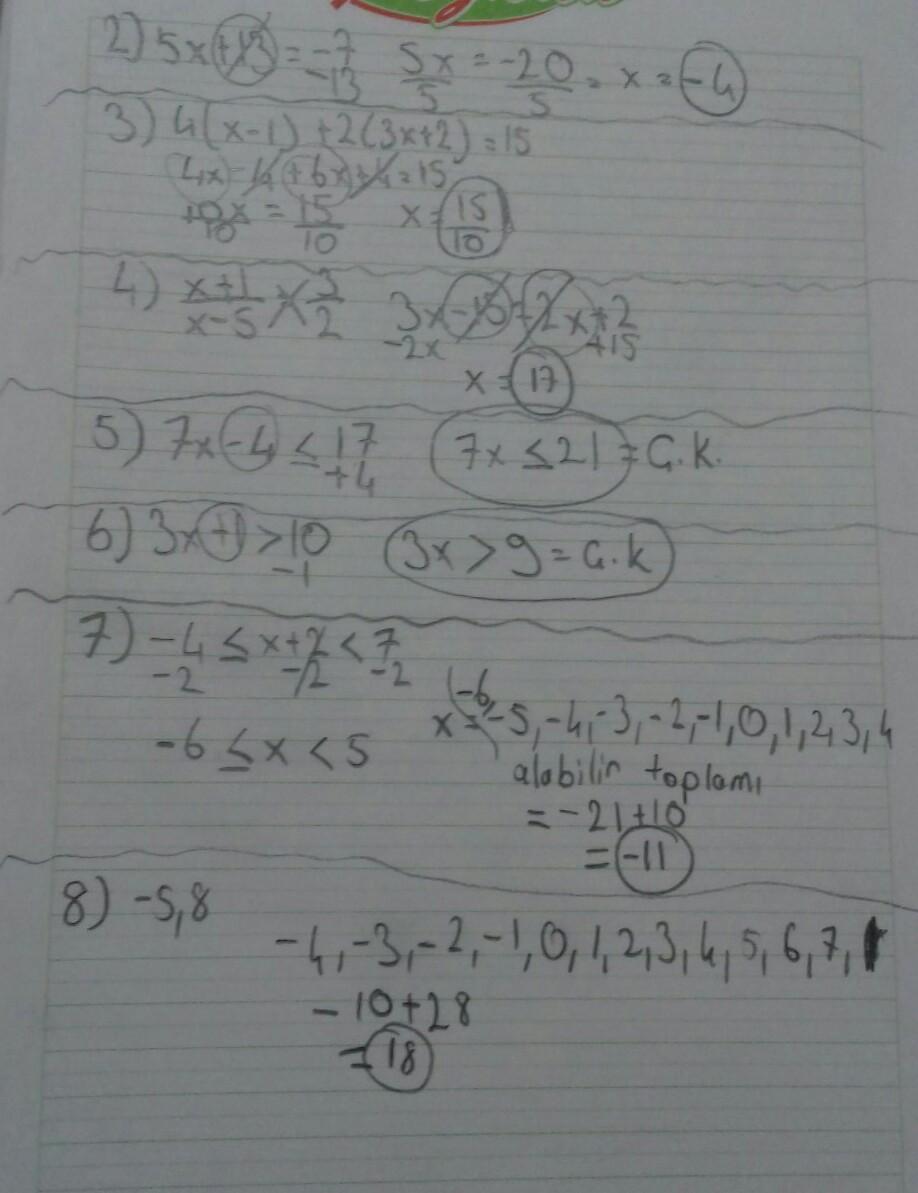 2) 5x+13 = -7   5x = -20 = x = -4
-13   5   5
3) 4(x-1) + 2(3x+2) = 15
4x-4+6x+4=15
10x = 15   x = 15
10   10   10
4) x+1 3   3x-15=2x+2
x-5 2   -2x   +15
x = 17
5) 7x-4 ≤ 17   7x ≤ 21 = Ç.K.
+4
6) 3x+1 > 10   3x > 9 = Ç.K
-1
7) -4 ≤ x+2 < 7
-2   -2   -2
-6 ≤ x < 5
x = -6, -5, -4, -3, -2, -1, 0, 1, 2, 3, 4
alabilir toplamı
= -21+10
= -11
8) -5,8
-4, -3, -2, -1, 0, 1, 2, 3, 4, 5, 6, 7,
-10+28
= 18